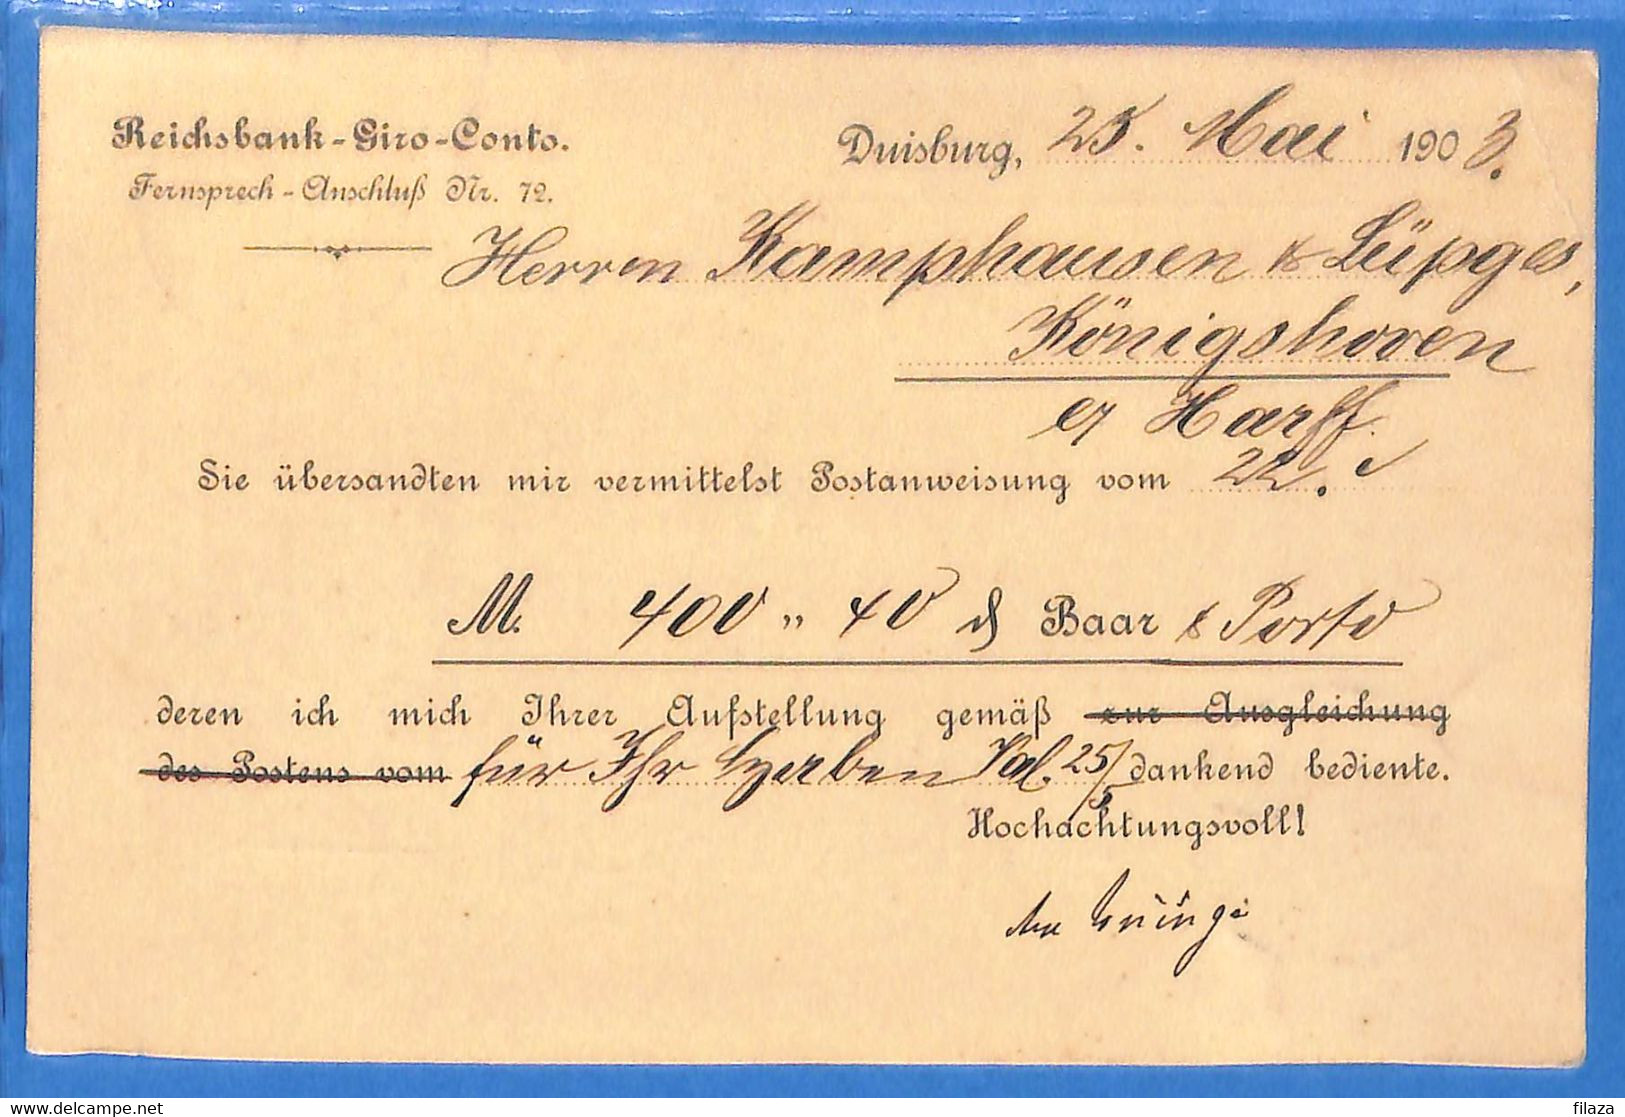 Reichsbank-Giro-Conto.
Fernsprech-Anschluß Nr. 72.
Duisburg, 25. Mai 1903.
Herren Kamphausen & Lüpges,
Königshoven
Harff.
Sie übersandten mir vermittelst Postanweisung vom 22.
M. 400 " 40 ₰ Baar & Porto
deren ich mich Ihrer Aufstellung gemäß zur Ausgleichung
des Postens vom für Ihr 25/5 dankend bediente.
Hochachtungsvoll!
delcampe.net
filaza